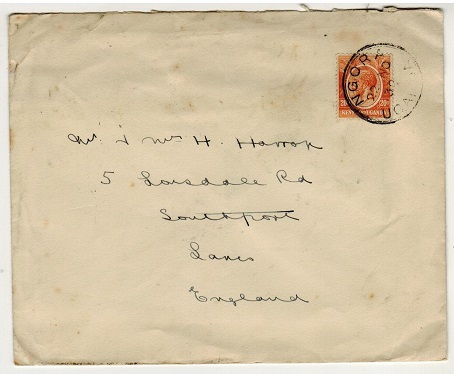 NGORA
UGANDA
20 20
KENYA UGANDA
Mr. & Mrs H. Harrop
5 Lonsdale Rd
Southport
Lancs
England